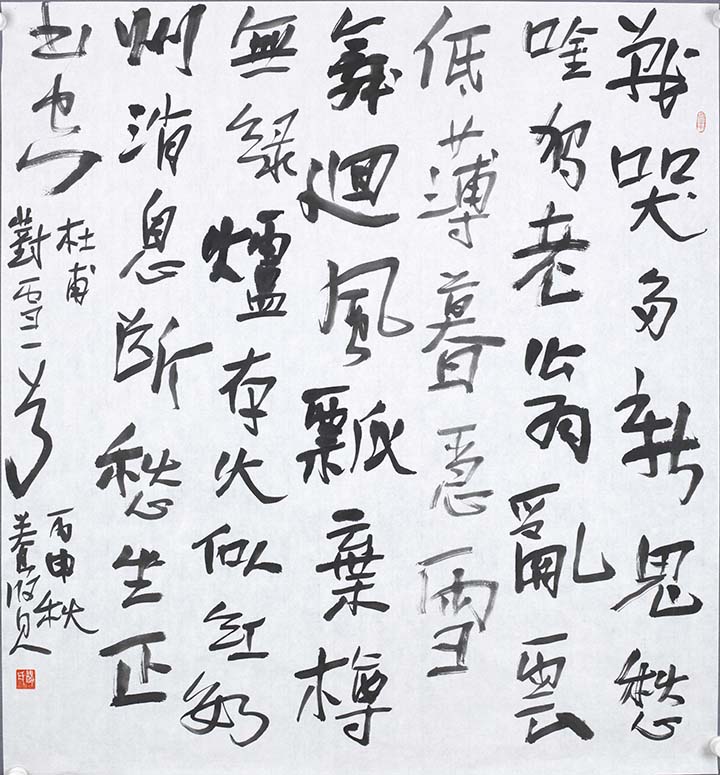 戰哭多新鬼愁
唫独老翁亂雲
低薄暮急雪
舞迴風瓢棄樽
無緑爐存火似紅數
州消息断愁坐正
書空
杜甫
對雪一首
丙申秋